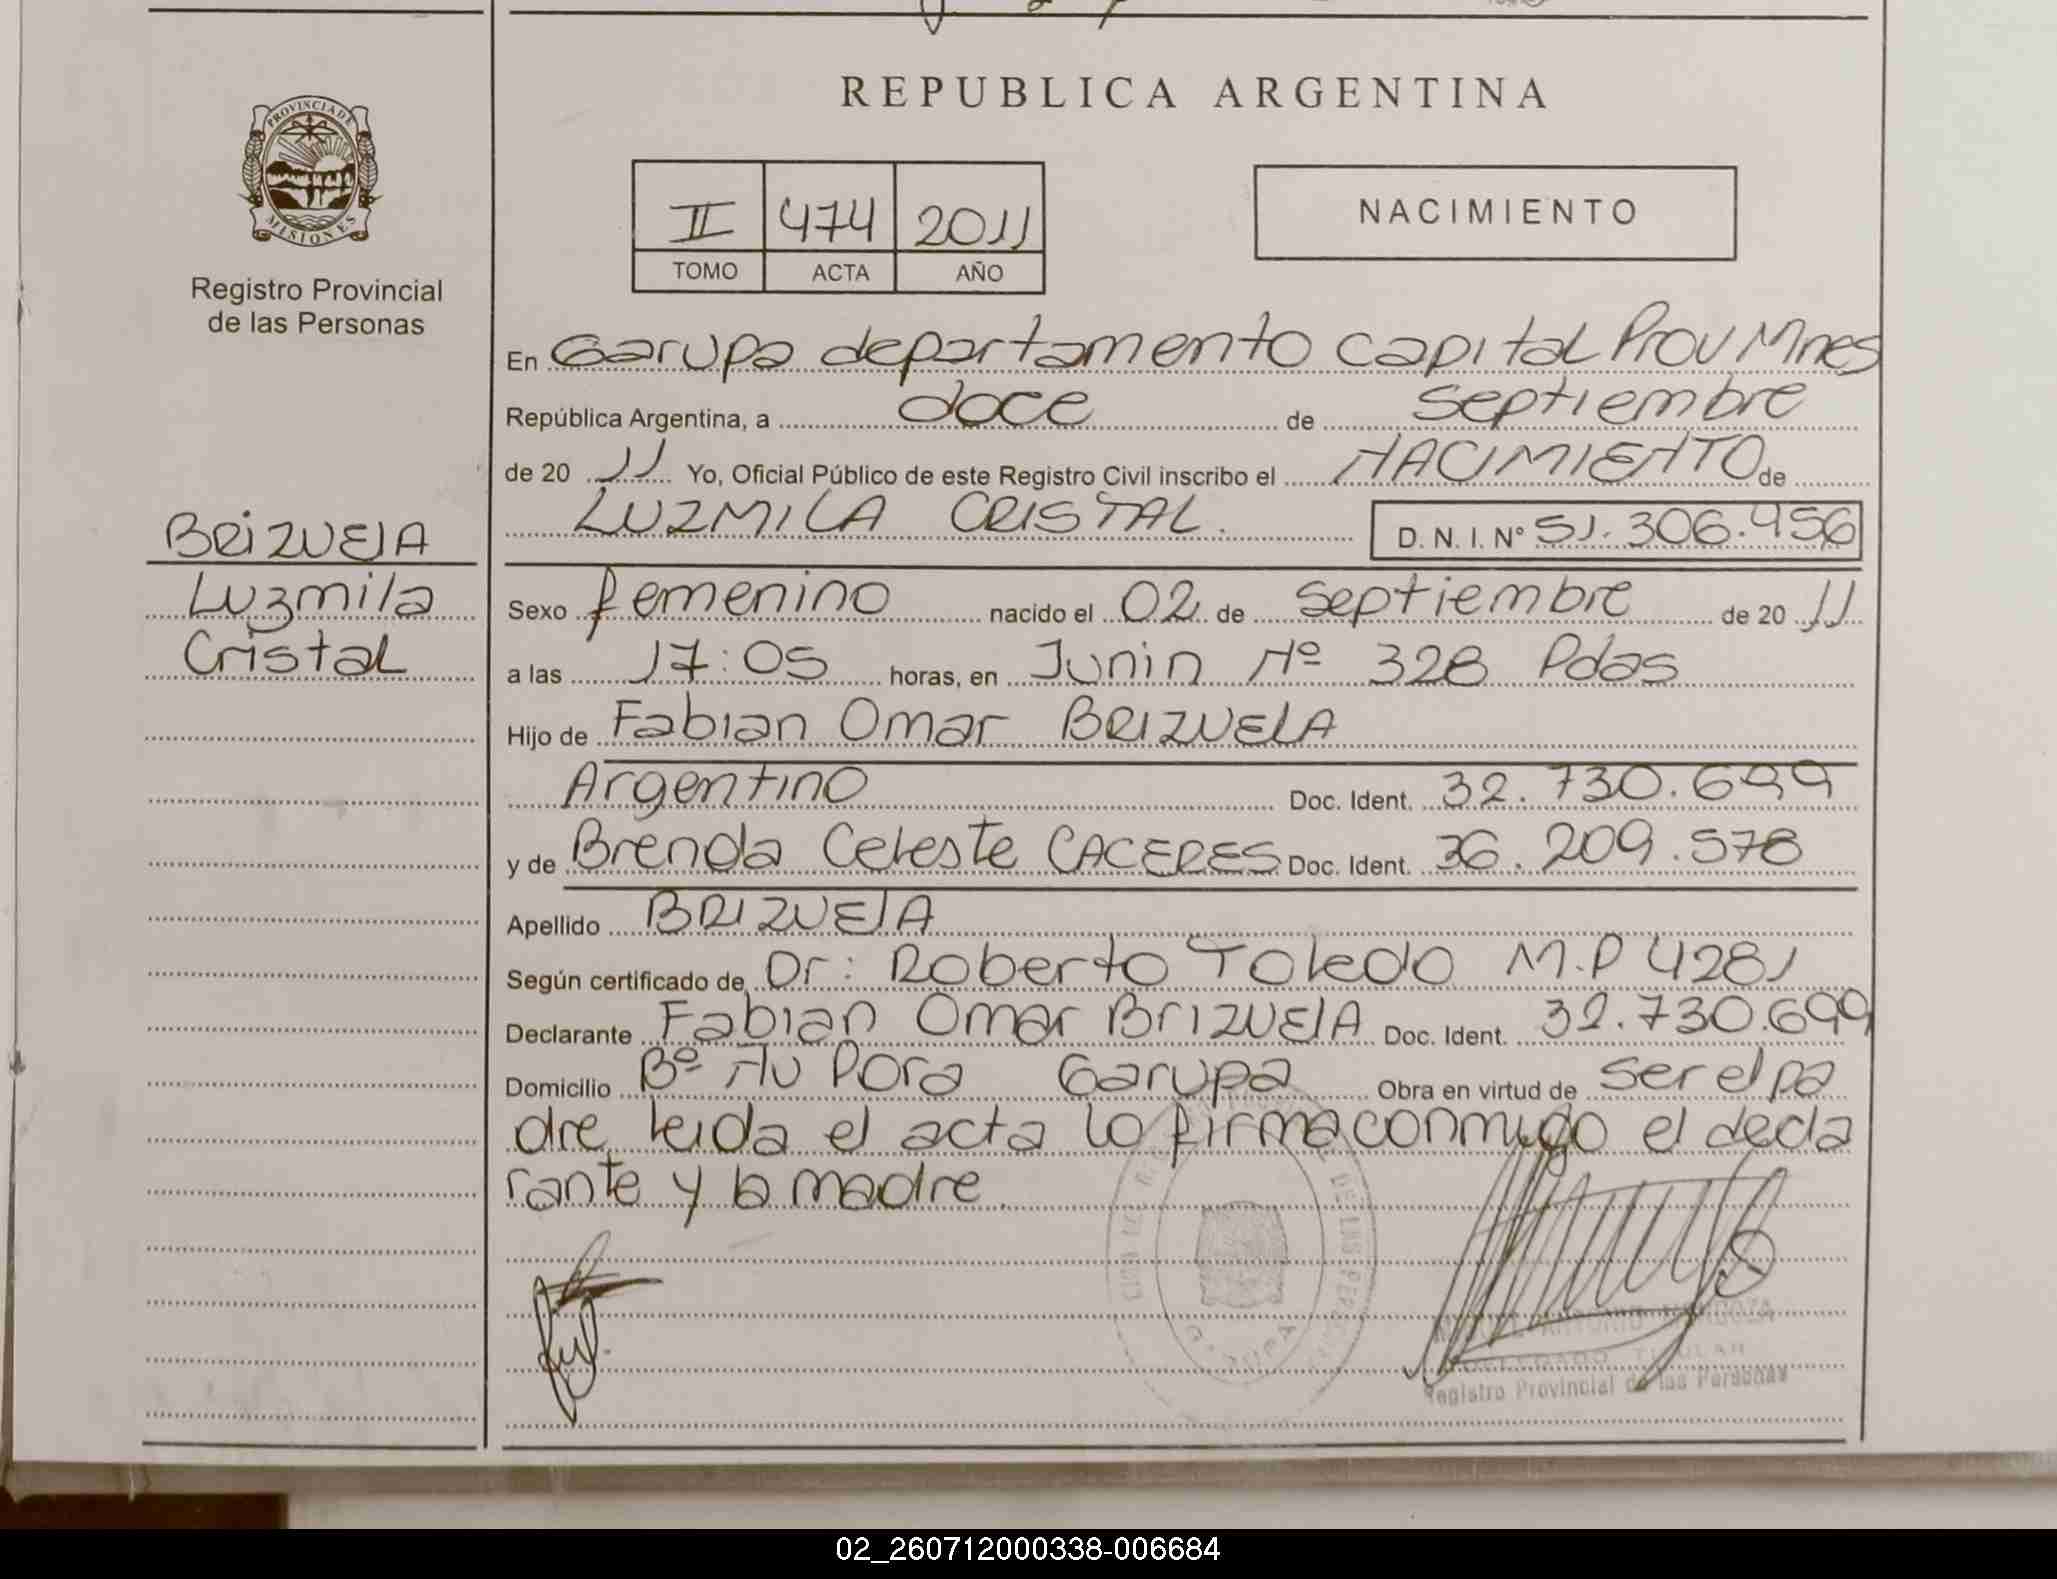 REPUBLICA ARGENTINA
PROVINCIA DE
MISIONES
Registro Provincial
de las Personas
II 474 2011
TOMO ACTA AÑO
NACIMIENTO
En Garupa departamento capital Prov Mnes
República Argentina, a doce de septiembre
de 20 11 Yo, Oficial Público de este Registro Civil inscribo el NACIMIENTO de
LUZMILA CRISTAL. D. N. I. N° 51.306.956
BRIZUELA
Luzmila
Cristal
Sexo femenino nacido el 02 de septiembre de 20 11
a las 17:05 horas, en Junin Nº 328 Pdas
Hijo de Fabian Omar BRIZUELA
Argentino Doc. Ident. 32.730.699
y de Brenda Celeste CACERES Doc. Ident. 36.209.578
Apellido BRIZUELA
Según certificado de Dr: Roberto Toledo M.P 4281
Declarante Fabian Omar BrizuelA Doc. Ident. 32.730.699
Domicilio Bº Ñu Pora Garupa Obra en virtud de ser el pa
dre leida el acta lo firma conmigo el decla
rante y la madre.
MIGUEL ANTONIO MENDOZA
DELEGADO TITULAR
Registro Provincial de las Personas
02_260712000338-006684